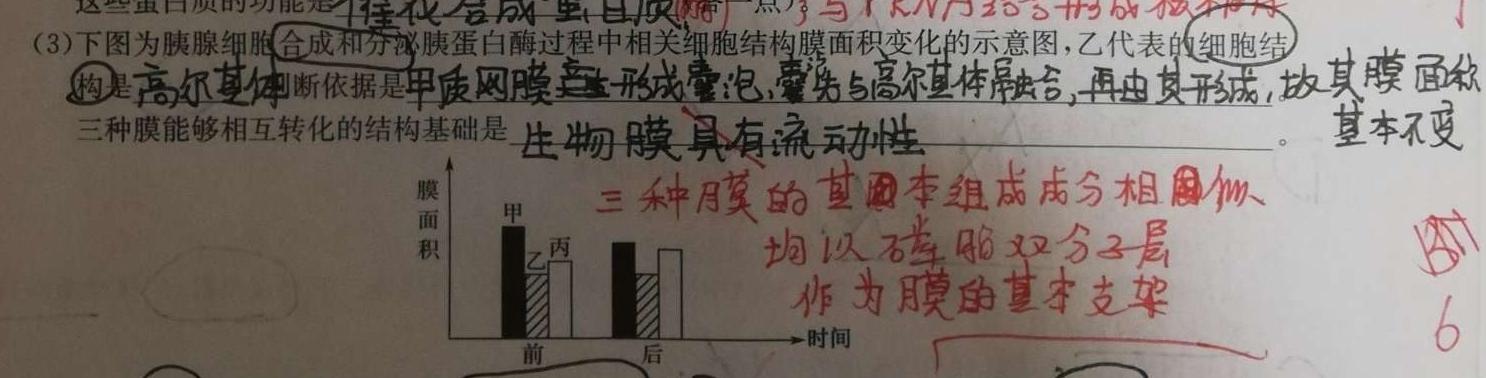 这些蛋白质的功能是 催化合成蛋白质(酶)答一点);与rRNA结合形成核糖体
(3)下图为胰腺细胞合成和分泌胰蛋白酶过程中相关细胞结构膜面积变化的示意图,乙代表的细胞结
构是高尔基体判断依据是甲质网膜形成囊泡,囊泡与高尔基体膜融合,再由其形成,故其膜面积
基本不变
三种膜能够相互转化的结构基础是 生物膜具有流动性 。
三种膜的基本组成成分相似
均以磷脂双分子层
作为膜的基本支架
膜面积
甲
乙
丙
前
后
时间
6